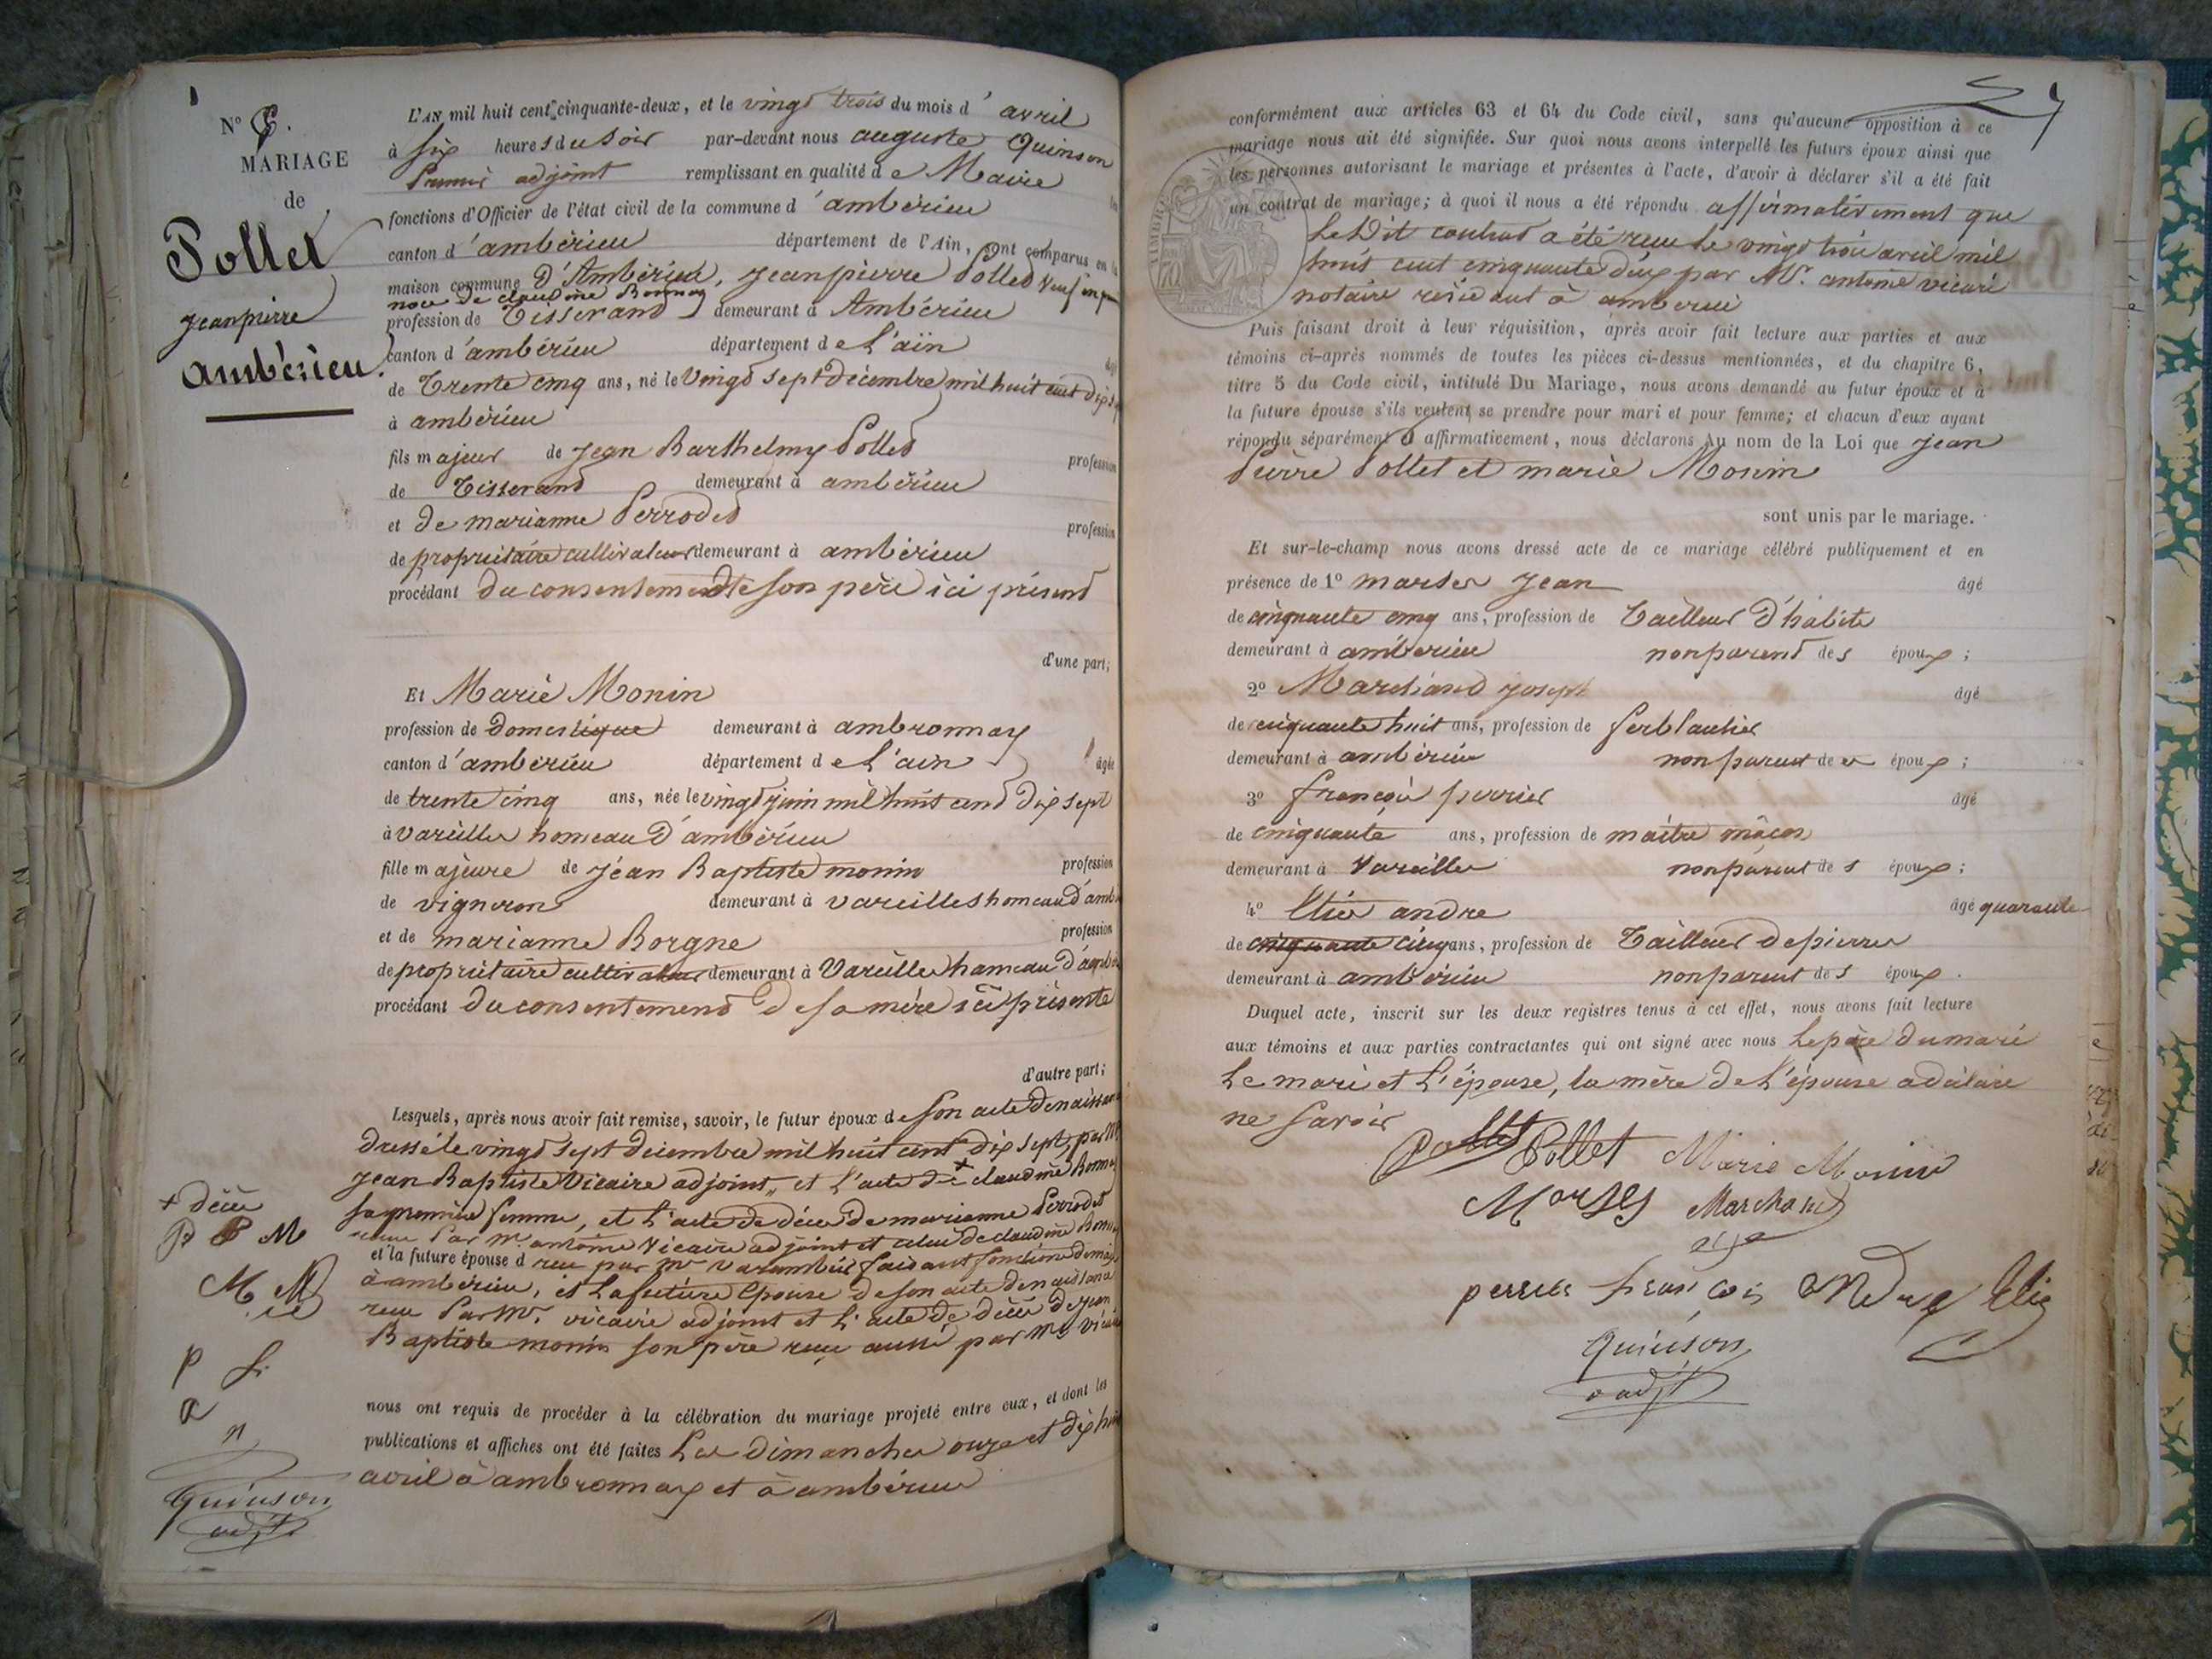 N° 8.
MARIAGE
de
Pollet
jeanpierre
Ambérieu.
L'AN mil huit cent cinquante-deux, et le vingt trois du mois d'avril
à six heures du soir par-devant nous auguste Quinson
Premier adjoint remplissant en qualité de Maire les
fonctions d'Officier de l'état civil de la commune d'ambérieu
canton d'ambérieu département de l'Ain, ont comparus en la
maison commune d'Ambérieu, jeanpierre Pollet veuf en pre
noce de claudine Bonnay
profession de Tisserand demeurant à Ambérieu
canton d'ambérieu département de L'ain
âgé
de Trente cinq ans, né le Vingt sept Décembre mil huit cent dix s
à ambérieu
fils majeur de jean Barthelmy Pollet profession
de Tisserand demeurant à ambérieu
et de marianne Perrodet profession
de propriétaire cultivateur demeurant à ambérieu
procédant du consentement de son père ici présent
d'une part;
Et Marie Monin
profession de domestique demeurant à ambronnay
canton d'ambérieu département de L'ain âgée
de trente cinq ans, née le vingt juin mil huit cent dix sept
à vareilles hameau d'ambérieu
fille majeure de jéan Baptiste monin profession
de vigneron demeurant à vareilles hameau d'ambé
et de marianne Borgne profession
de propriétaire cultivateur demeurant à Vareilles hameau d'ambé
procédant du consentement de sa mère ici présente
d'autre part;
Lesquels, après nous avoir fait remise, savoir, le futur époux de son acte de naissance
dressé le vingt sept décembre mil huit cent dix sept, par Mr
jean Baptiste Vicaire adjoint, et l'acte de + claudine Bonnay
sa première femme, et l'acte de décès de marianne Perrodet
reçu Par mr antoine Vicaire adjoint et celui de claudine Bonnay
et la future épouse d reçu par mr Varambus faisant fonctions de maire
à ambérieu, et la future épouse de son acte de naissance
reçu Par Mr. vicaire adjoint et l'acte de décès de jean
Baptiste monin son père reçu aussi par Mr vicaire
+ décès
P P M
M M
P f.
a
n
Quinson
adjt
nous ont requis de procéder à la célébration du mariage projeté entre eux, et dont les
publications et affiches ont été faites les dimanches onze et dix huit
avril à ambronnay et à ambérieu
conformément aux articles 63 et 64 du Code civil, sans qu'aucune opposition à ce
mariage nous ait été signifiée. Sur quoi nous avons interpellé les futurs époux ainsi que
les personnes autorisant le mariage et présentes à l'acte, d'avoir à déclarer s'il a été fait
un contrat de mariage; à quoi il nous a été répondu affirmativement que
Le Dit contrat a été reçu le vingt trois avril mil
huit cent cinquante deux par Mr. antoine vicaire
notaire résidant à amberieu
TIMBRE
70
Puis faisant droit à leur réquisition, après avoir fait lecture aux parties et aux
témoins ci-après nommés de toutes les pièces ci-dessus mentionnées, et du chapitre 6,
titre 5 du Code civil, intitulé Du Mariage, nous avons demandé au futur époux et à
la future épouse s'ils veulent se prendre pour mari et pour femme; et chacun d'eux ayant
répondu séparément et affirmativement, nous déclarons Au nom de la Loi que jean
Pierre Pollet et marie Monin
sont unis par le mariage.
Et sur-le-champ nous avons dressé acte de ce mariage célébré publiquement et en
présence de 1° marser jean âgé
de cinquante cinq ans, profession de Tailleur d'habits
demeurant à ambérieu non parent des époux;
2° Marchand joseph âgé
de cinquante huit ans, profession de ferblantier
demeurant à ambérieu non parent des époux;
3° françois perrier âgé
de cinquante ans, profession de maître maçon
demeurant à Vareilles non parent des époux;
4° Elie andre âgé quarante
de cinquante cinq ans, profession de Tailleur de pierres
demeurant à ambérieu non parent des époux.
Duquel acte, inscrit sur les deux registres tenus à cet effet, nous avons fait lecture
aux témoins et aux parties contractantes qui ont signé avec nous Le père du marié
Le marié et L'épouse, la mère de L'épouse a déclaré
ne savoir
Pollet Pollet Marie Monin
Marchand
perrier françois andre Elie
Quinson
adjt